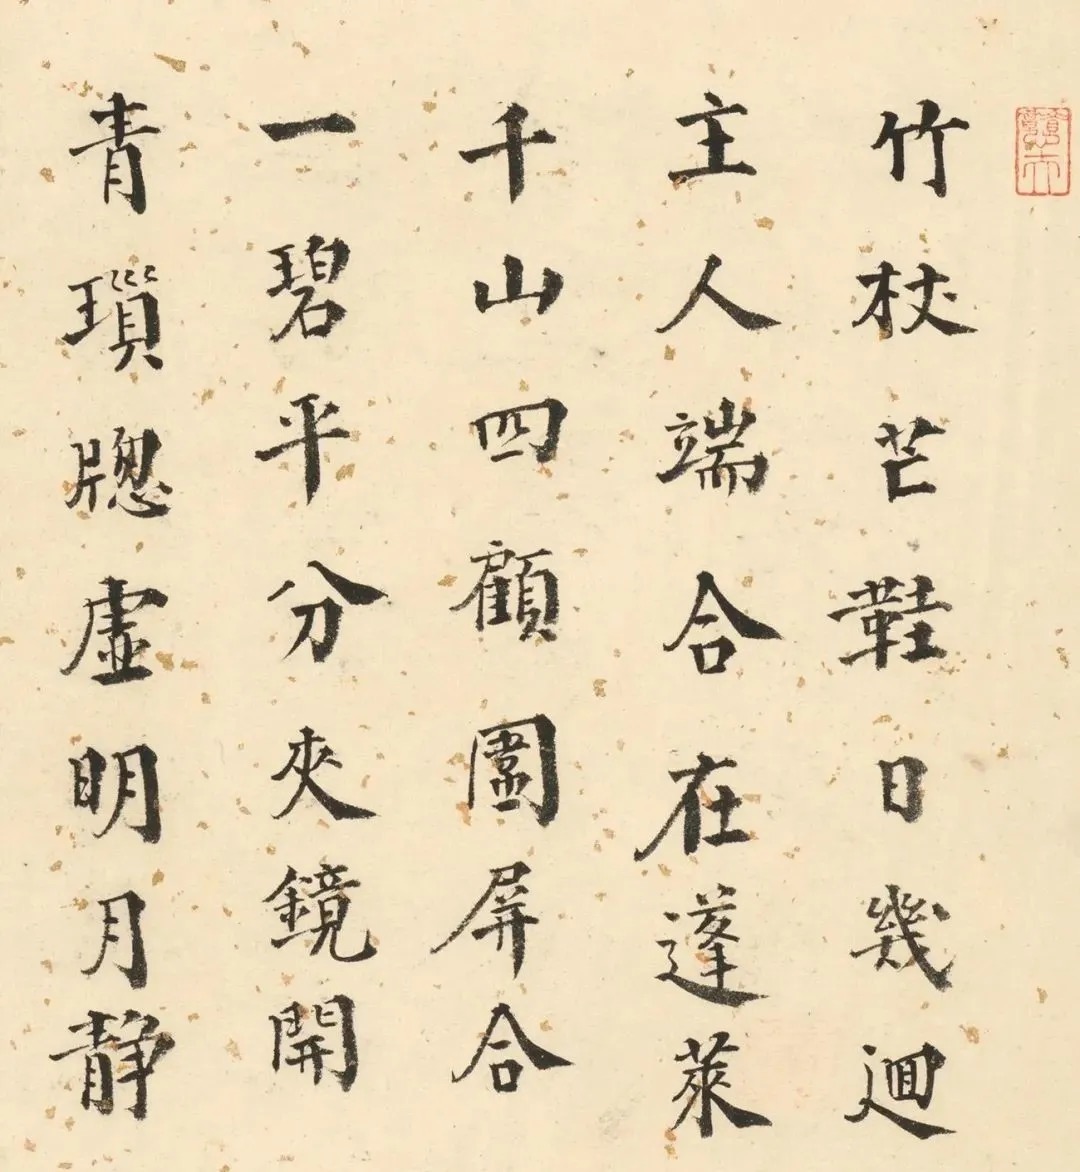 竹杖芒鞋日幾迴
主人端合在蓬萊
千山四顧圍屏合
一碧平分夾鏡開
青瑣牎虛明月静